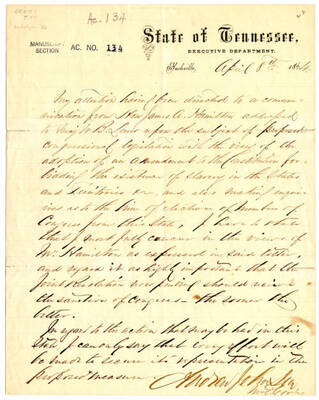 Ac. 134
MANUSCRIPT
SECTION
AC. NO. 134
State of Tennessee,
EXECUTIVE DEPARTMENT.
Nashville, April 8th 1864
My attention having been directed to a commu-
nication from Hon James A. Hamilton addressed
to upon the subject of proposed
congressional legislation with the view of the
adoption of an amendment to the Constitution for-
bidding the existence of slavery in the States
and Territories &c, and also making inquiries
as to the time of election of members of
Congress from this State, I have to state
that I most fully concur in the views of
Mr. Hamilton as expressed in said letter,
and regard it as highly important that the
Joint Resolution now pending should receive
the sanction of Congress the sooner the
better.
In regard to the action that may be had in this
State, I can only say that every effort will
be made to secure its representation in the
proposed measure.
Andrew Johnson